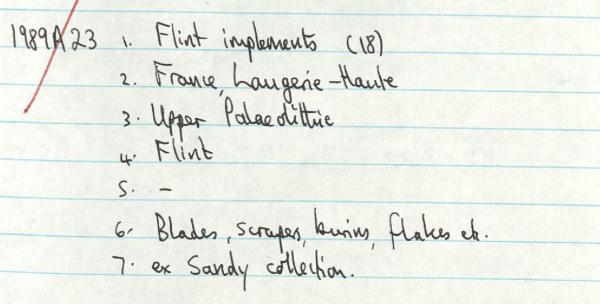 1989A23 1. Flint implements (18)
2. France, Laugerie-Haute
3. Upper Palaeolithic
4. Flint
5. -
6. Blades, scrapers, burins, flakes etc.
7. ex Sandy collection.